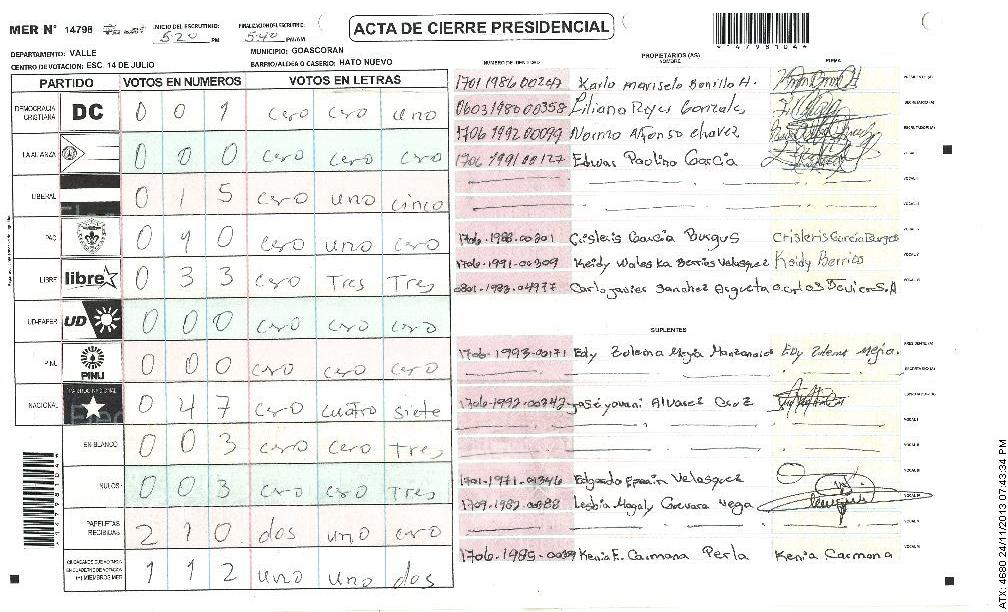 MER N° 14798
INICIO DEL ESCRUTINIO: 5:20 PM
FINALIZACION ESCRUTINIO: 5:40 PM/AM
ACTA DE CIERRE PRESIDENCIAL
*4798104*
DEPARTAMENTO: VALLE
MUNICIPIO: GOASCORAN
CENTRO DE VOTACION: ESC. 14 DE JULIO
BARRIO/ALDEA O CASERIO: HATO NUEVO
PARTIDO VOTOS EN NUMEROS VOTOS EN LETRAS
DEMOCRACIA CRISTIANA DC 0 0 1 cero cero uno
LA ALIANZA 0 0 0 cero cero cero
LIBERAL 0 1 5 cero uno cinco
PAC 0 1 0 cero uno cero
LIBRE libre 0 3 3 cero Tres Tres
UD-FAPER UD 0 0 0 cero cero cero
PINU PINU 0 0 0 cero cero cero
NACIONAL 0 4 7 cero cuatro siete
EN BLANCO 0 0 3 cero cero Tres
NULOS 0 0 3 cero cero Tres
PAPELETAS RECIBIDAS 2 1 0 dos uno cero
(+) MIEMBROS MER 1 1 2 uno uno dos
NUMERO DE IDENTIDAD PROPIETARIOS (AS) NOMBRE FIRMA
Karla mariselo Bonilla H.
0603 1980 00358 Liliana Reyes Gonzales
1706 1992 00099 Norma Alfonso chavez
1706 1991 00127 Edwar Paolino Garcia
1706-1988-00301 Crisleris Garcia Burgus Crisleris Garcia Burgos
1706-1991-00309 Keidy Waleska Berrios Velasquez Keidy Berrios
0801-1983-04977 Carlo javier Sanchez Argueta
SUPLENTES
1706-1993-00171 Edy Zulema Mejia Manzanares Edy Zulema Mejia.
1706-1992-00342 jose yovani Alvares Cruz
1701-1971-00346 Edgardo Efrain Velasquez
Lesbia Magaly Guevara Vega
Kenia E. Carmona Perla Kenia Carmona
ATX: 4680 24/11/2013 07:43:34 PM